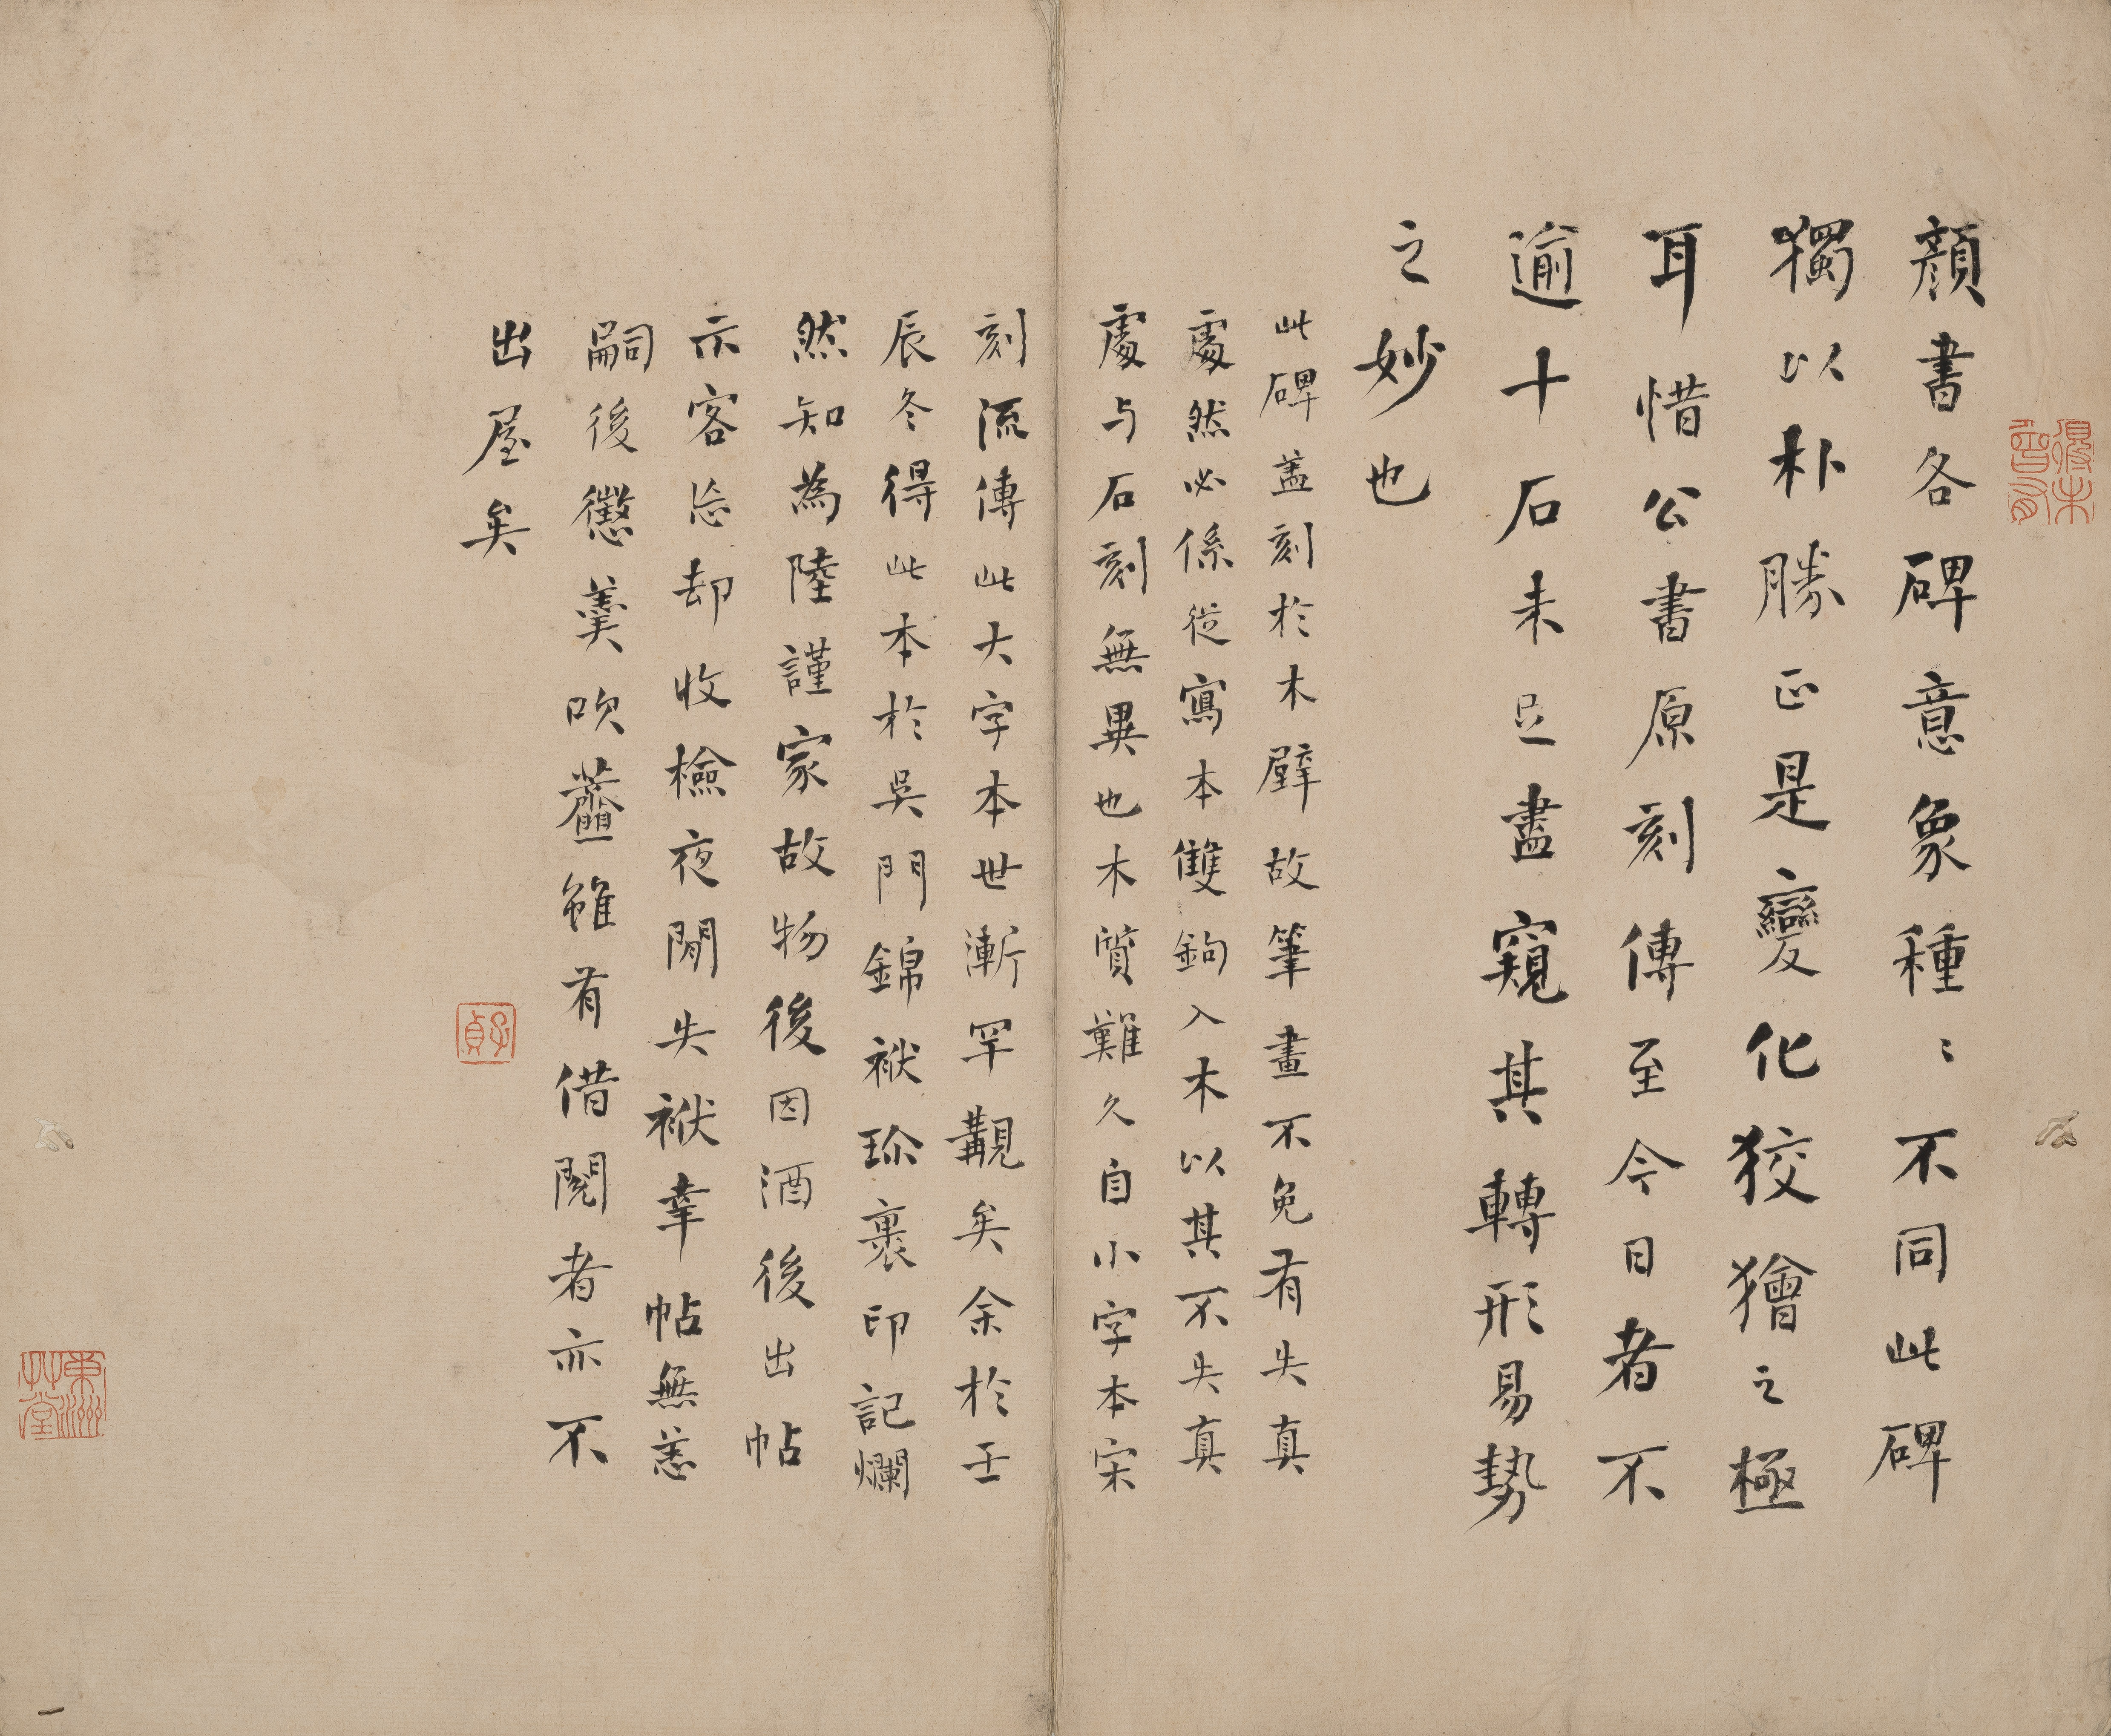 顏書各碑意象種〻不同此碑
獨以朴勝正是變化狡獪之極
耳惜公書原刻傳至今日者不
逾十石未足盡窺其轉形易勢
之妙也
此碑盖刻於木壁故筆畫不免有失真
處然必係從寫本雙鉤入木以其不失真
處与石刻無異也木質難久自小字本宋
刻流傳此大字本世漸罕覯矣余於壬
辰冬得此本於吳門錦袱珎裹印記爛
然知為陸謹家故物後因酒後出帖
示客忘却收檢夜間失袱幸帖無恙
嗣後懲羹吹虀雖有借閱者亦不
出屋矣
子貞
東洲艸堂